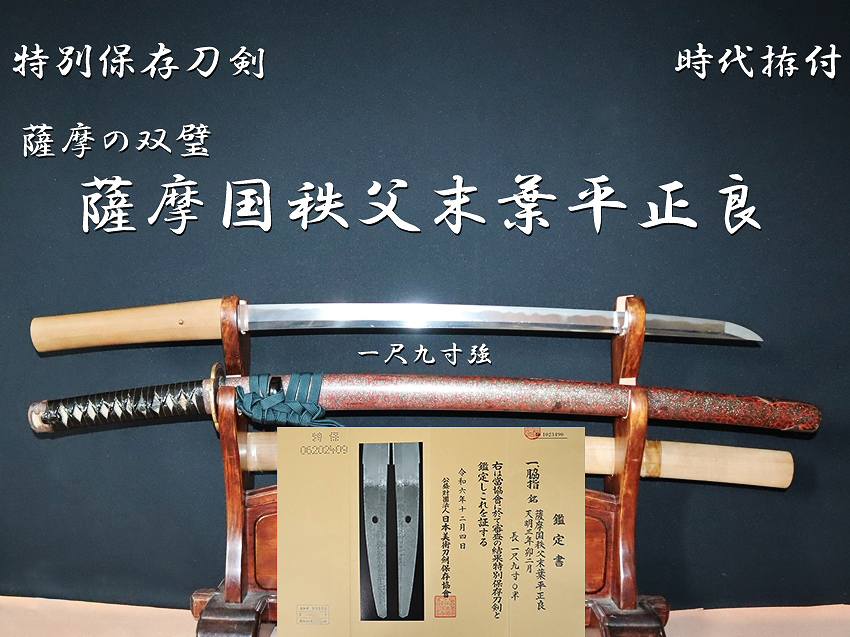 特別保存刀剣
時代拵付
薩摩の双璧
薩摩国秩父末葉平正良
一尺九寸強
特保
06202409
1023490
鑑定書
一脇指 銘 薩摩国秩父末葉平正良
天明三年卯二月
長一尺九寸〇半
右は當協會に於て審査の結果特別保存刀剣と
鑑定しこれを証する
令和六年十二月四日
公益財團法人日本美術刀剣保存協會